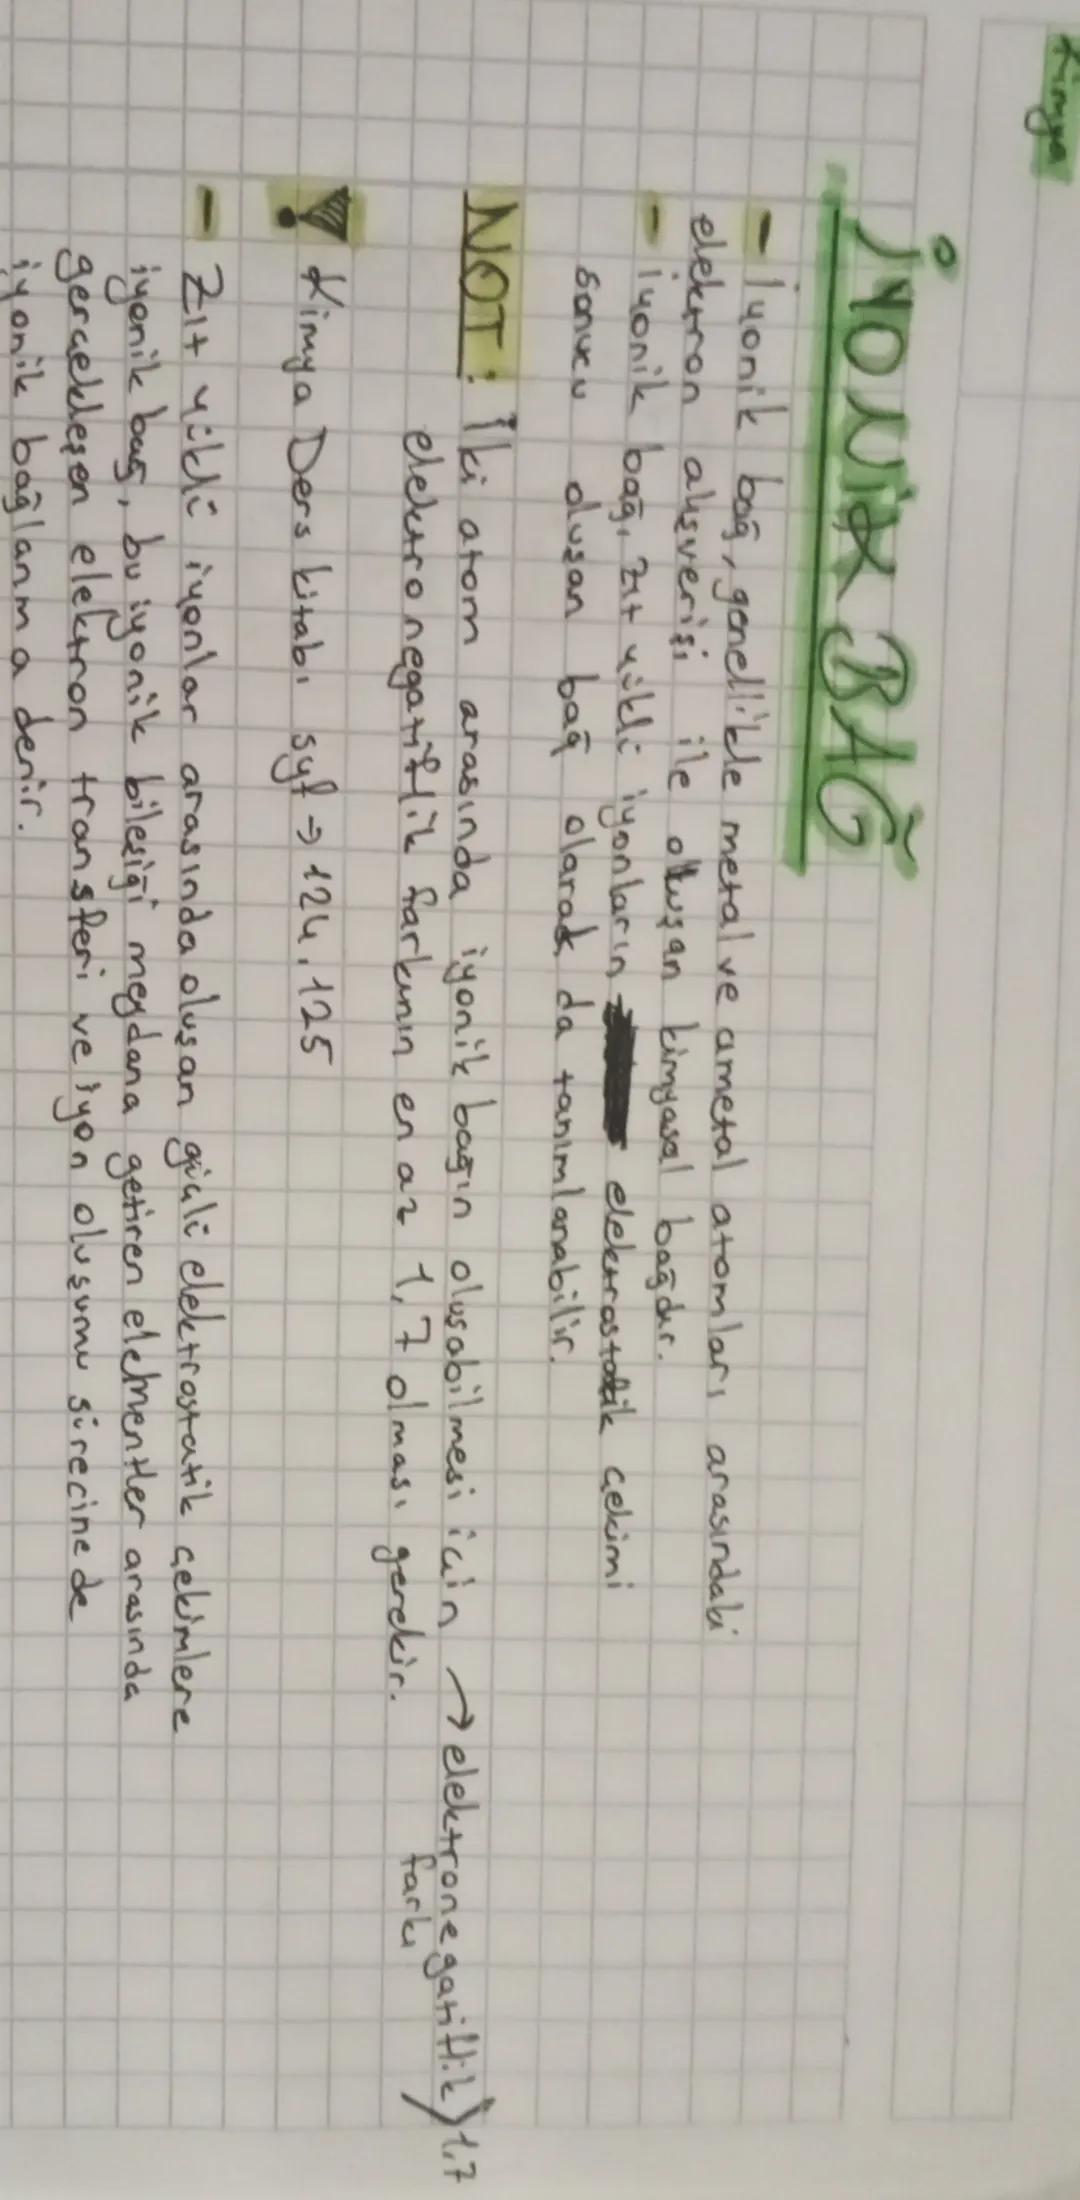 Kimya
İYONİK BAĞ
- İyonik bağ, genellikle metal ve ametal atomları arasındaki
elektron alışverişi ile oluşan kimyasal bağdır.
- İyonik bağ, zıt yüklü iyonların elektrostatik çekimi
sonucu oluşan bağ olarak da tanımlanabilir.
NOT: İki atom arasında iyonik bağın oluşabilmesi için → elektronegatiflik > 1,7
farkı
elektronegatiflik farkının en az 1,7 olması gerekir.
! Kimya Ders kitabı syf → 124, 125
- Zıt yüklü iyonlar arasında oluşan güçlü elektrostatik çekimlere
iyonik bağ, bu iyonik bileşiği meydana getiren elementler arasında
gerçekleşen elektron transferi ve iyon oluşumu sürecine de
iyonik bağlanma denir.